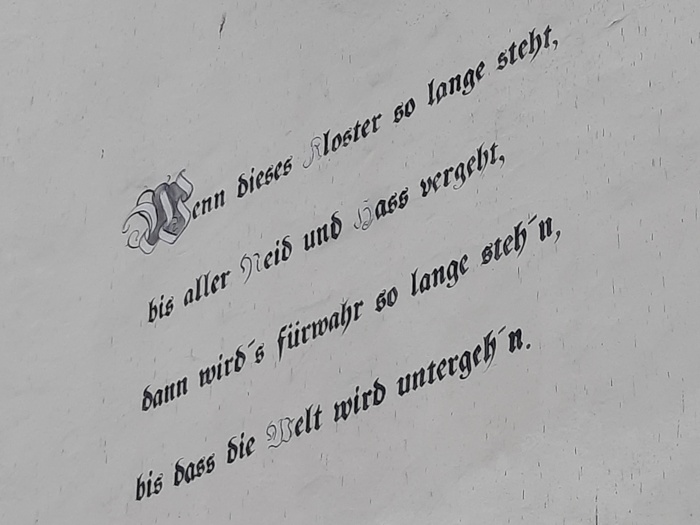 Wenn dieses Kloster so lange steht,
bis aller Neid und Hass vergeht,
dann wird´s fürwahr so lange steh´n,
bis dass die Welt wird untergeh´n.